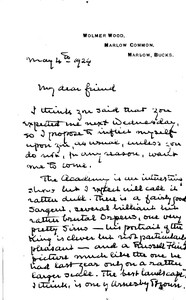 WOLMER WOOD,
MARLOW COMMON,
MARLOW, BUCKS.
May 4th 1924
My dear friend
I think you said that you
expected me next Wednesday,
so I propose to inflict myself
upon you, as usual, unless you
do not, for any reason, want
me to come.
The Academy is an interesting
show but I expect will call it
rather dull. There is a fairly good
Sargent, several brilliant but
rather brutal Orpens, one very
pretty Sims — his portrait of the
King is clever but not particularly
pleasant — and a Russell Flint
picture much like the one he
had last year only on a rather
larger scale. The best landscape,
I think, is one of Arnesby Brown's